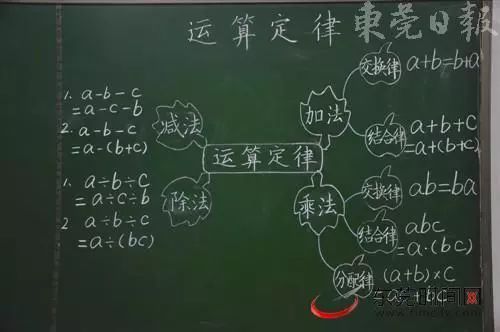 運算定律
東莞日報
1. a-b-c
=a-c-b
2. a-b-c
=a-(b+c)
减法
1. a÷b÷c
=a÷c÷b
2 a÷b÷c
=a÷(bc)
除法
运算定律
加法
交换律 a+b=b+a
结合律 a+b+c
=a+(b+c)
乘法
交换律 ab=ba
结合律 abc
=a·(bc)
分配律 (a+b)×c
=ac+bc
东莞时间网
www.timedg.com